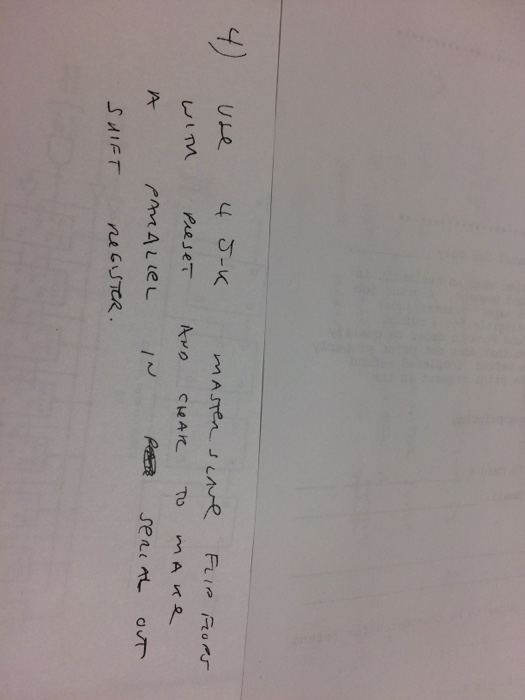 4) USE 4 J-K MASTER SLAVE FLIP FLOPS
WITH PRESET AND CLEAR TO MAKE
A PARALLEL IN SERIAL OUT
SHIFT REGISTER.